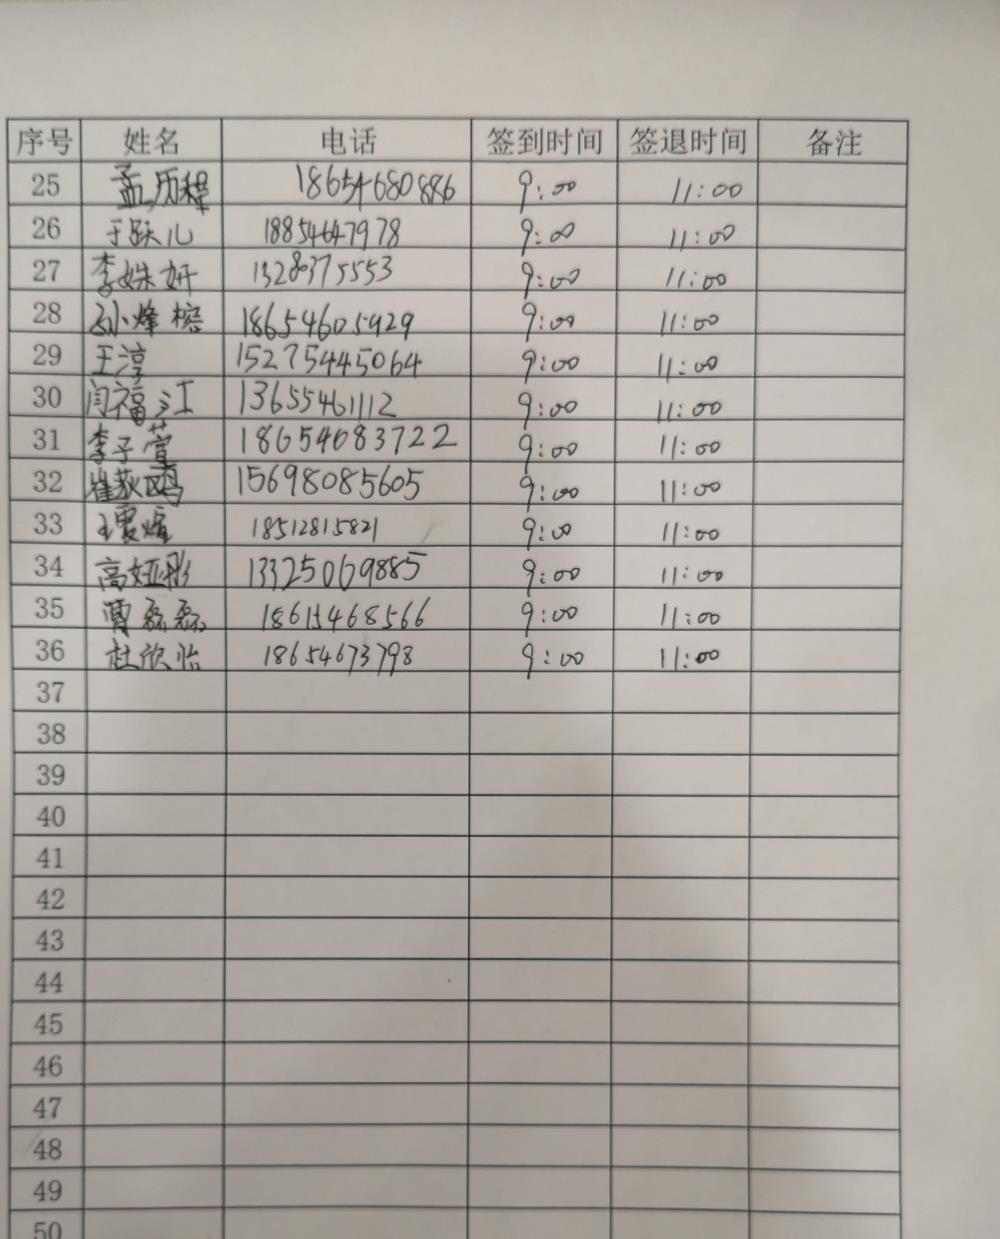 序号 姓名 电话 签到时间 签退时间 备注
25 孟历程 18654680886 9:00 11:00
26 于跃儿 18854647978 9:00 11:00
27 李姝妍 13280375553 9:00 11:00
28 孙烽榕 18654605929 9:00 11:00
29 王淳 15275445064 9:00 11:00
30 闫福江 13655461112 9:00 11:00
31 李子萱 18654083722 9:00 11:00
32 15698085605 9:00 11:00
33 18512815821 9:00 11:00
34 高娅彤 13325069885 9:00 11:00
35 磊磊 18615468566 9:00 11:00
36 杜欣怡 18654673798 9:00 11:00
37
38
39
40
41
42
43
44
45
46
47
48
49
50